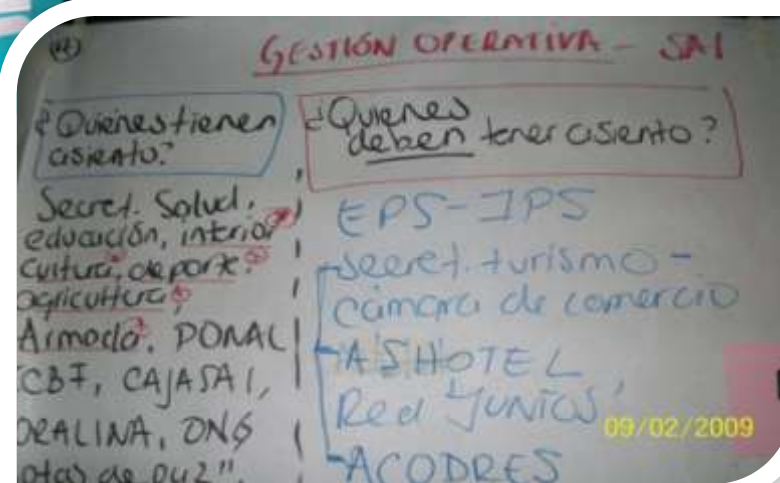 GESTIÓN OPERATIVA - SAI
¿Quienes tienen
asiento?
Secret. Salud,
educación, interior
cultura, deporte,
agricultura,
Armada, PONAL
ICBF, CAJASAI,
CORALINA, ONG
otas de paz".
¿Quienes
deben tener asiento?
EPS-IPS
secret. turismo -
cámara de comercio
ASHOTEL
Red "JUNTOS"
ACODRES
09/02/2009